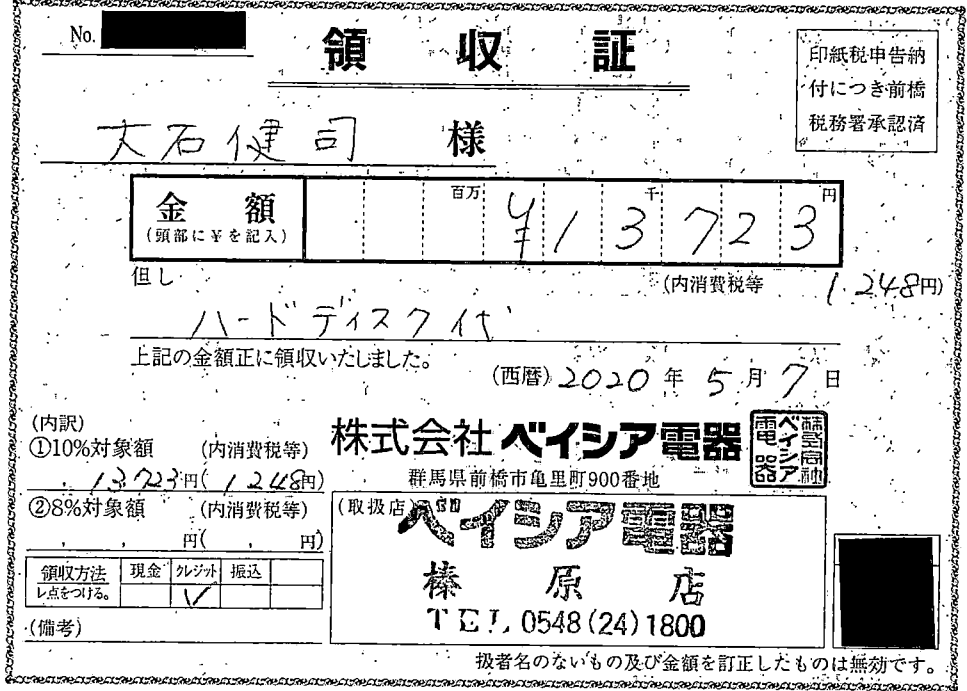 No.
領収証
印紙税申告納
付につき前橋
税務署承認済
大石健司 様
金額
(頭部に¥を記入)
百万 千 円
¥13723
但し (内消費税等 1,248円)
ハードディスク代
上記の金額正に領収いたしました。
(西暦) 2020年 5月 7日
(内訳)
①10%対象額 (内消費税等)
13723円( 1248円)
②8%対象額 (内消費税等)
, , 円( , 円)
領収方法 現金 クレジット 振込
レ点をつける。 ✓
(備考)
株式会社 ベイシア電器
株式会社
ベイシア
電器
群馬県前橋市亀里町900番地
(取扱店)
ベイシア電器
榛原店
TEL 0548(24)1800
扱者名のないもの及び金額を訂正したものは無効です。